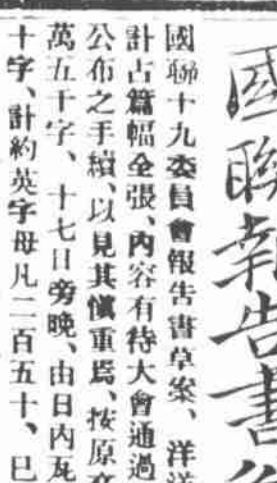 國聯報告書
國聯十九委員會報告書草案、洋洋
計占篇幅全張、內容有待大會通過
公布之手續、以見其愼重焉、按原
萬五千字、十七日旁晚、由日內瓦
十字、計約英字母凡二百五十、已